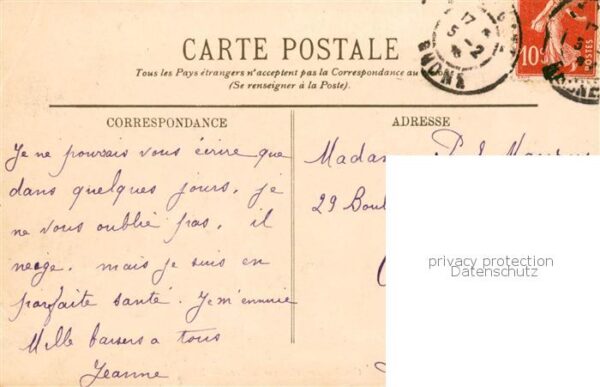 CARTE POSTALE
Tous les Pays étrangers n'acceptent pas la Correspondance au
(Se renseigner à la Poste).
CORRESPONDANCE
ADRESSE
Je ne pourrais vous écrire que
dans quelques jours, je
ne vous oublie pas, il
neige, mais je suis en
parfaite santé. Je m'ennuie
Mille baisers a tous
Jeanne
Madam
29 Boul
17
5 - 2
RHONE
10
POSTES
RHONE
privacy protection
Datenschutz